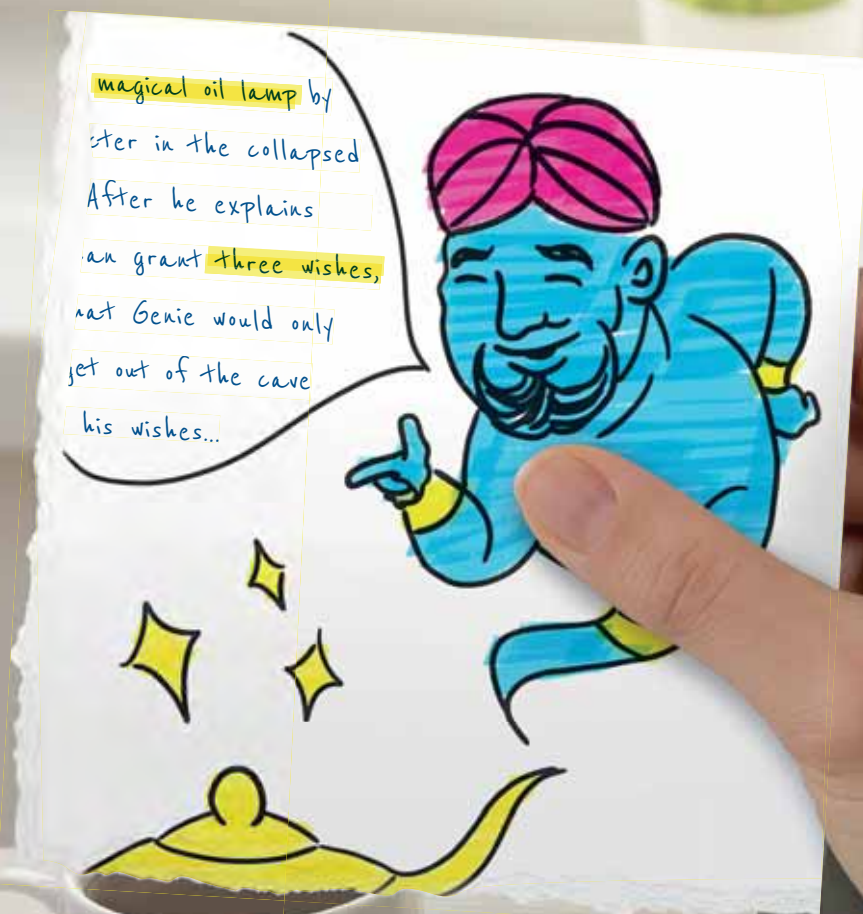 magical oil lamp by
cter in the collapsed
After he explains
an grant three wishes,
hat Genie would only
get out of the cave
his wishes...